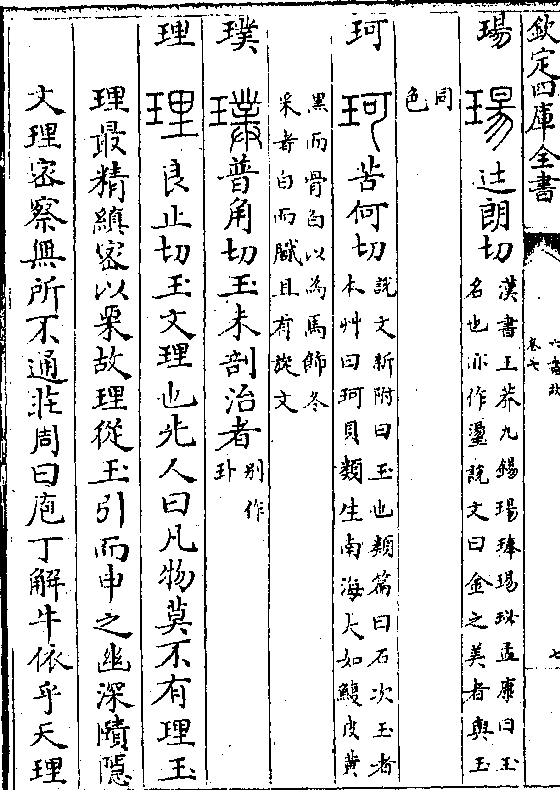 欽定四庫全書
六書故
卷七
七
瑒 瑒 徒朗切 漢書王莽九錫瑒琫瑒珌孟康曰玉
名也亦作璗說文曰金之美者與玉
同
色
珂 珂 苦何切 說文新附曰玉也類篇曰石次玉者
本艸曰珂貝類生南海大如鰒皮黃
黑而骨白以為馬飾冬
采者白而膩且有旋文
璞 璞 普角切玉未剖治者 別作
卦
理 理 良止切玉文理也先人曰凡物莫不有理玉
理最精縝密以栗故理從玉引而申之幽深賾隱
文理密察無所不通莊周曰庖丁解牛依乎天理